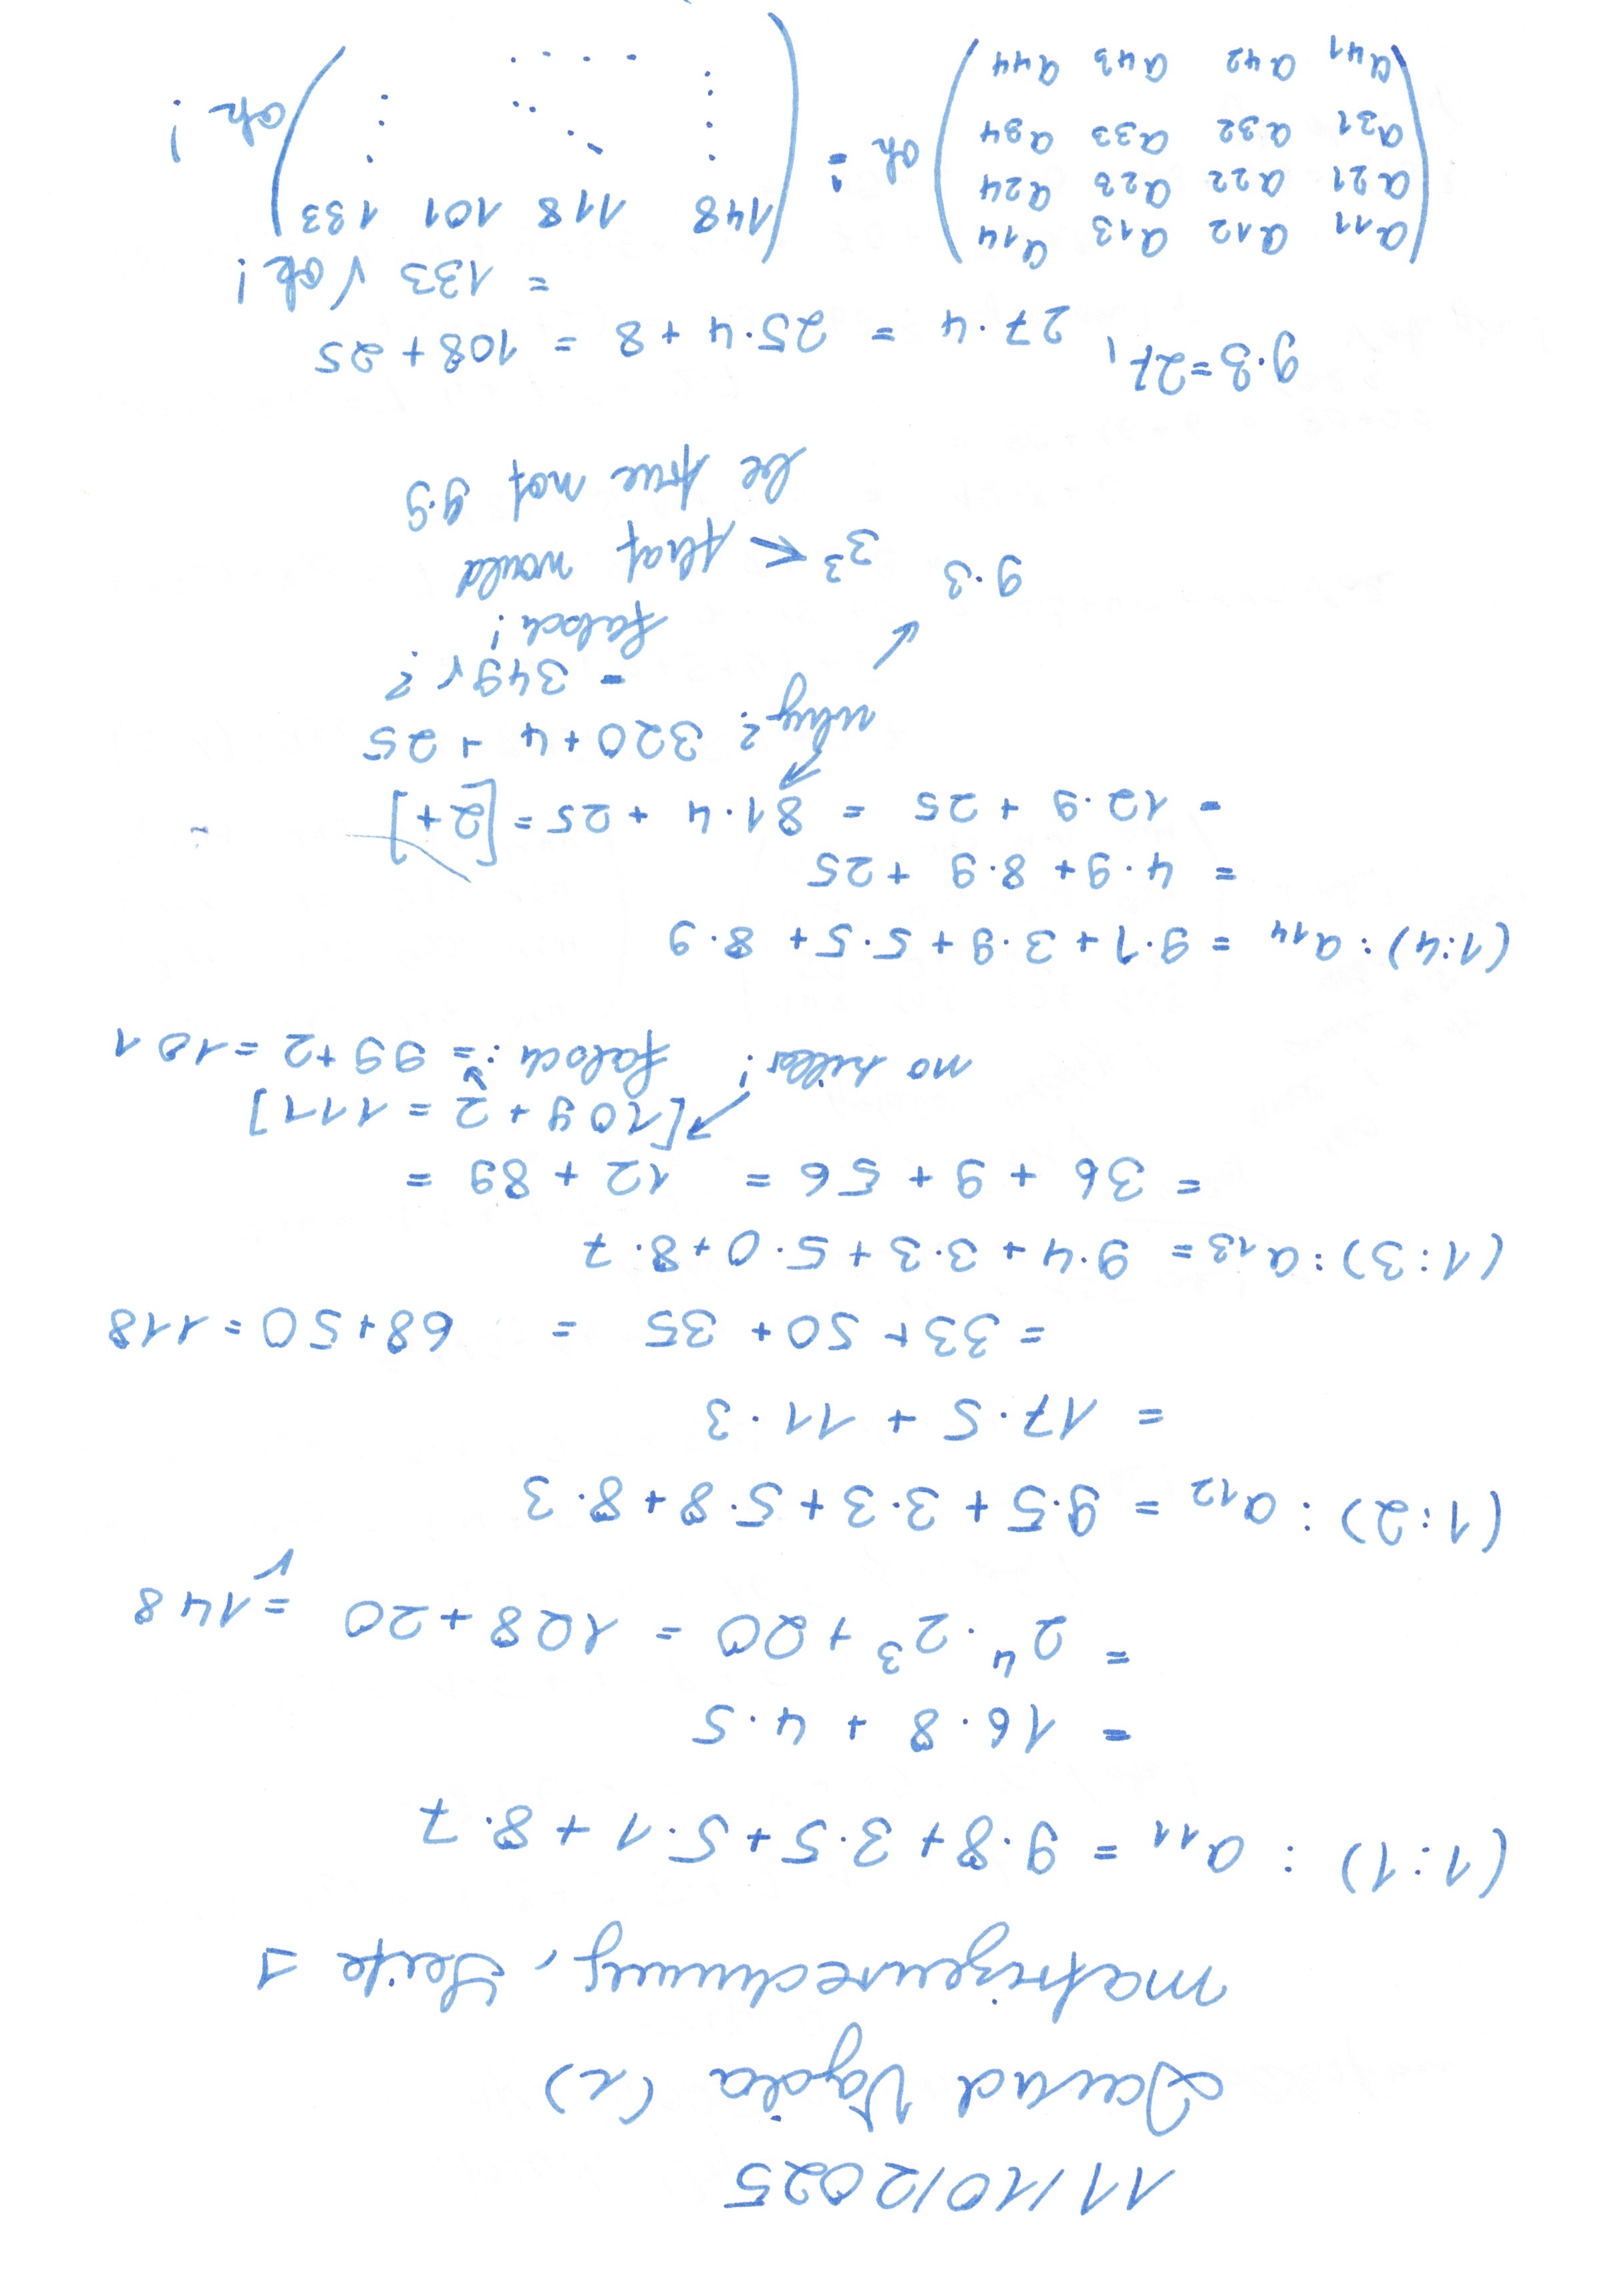 11/10/2025
David Vajda (c)
Matrizenrechnung, Seite 1
(1:1) : a11 = 9·8 + 3·5 + 5·1 + 8·7
= 16·8 + 4·5
= 2⁴·2³ + 20 = 128 + 20 = 148
√
(1:2) : a12 = 9·5 + 3·3 + 5·8 + 8·3
= 17·5 + 11·3
= 33 + 50 + 35 = 68+50 = 118
(1:3) : a13 = 9·4 + 3·3 + 5·0 + 8·7
= 36 + 9 + 56 = 12 + 89 =
[109 + 2 = 111]
no killer! falsch := 99+2 = 101
(1:4) : a14 = 9·1 + 3·9 + 5·5 + 8·9
= 4·9 + 8·9 + 25
= 12·9 + 25 = 81·4 + 25 = [2+]
why? 320+4 + 25
= 349 √?
falsch!
9·3 3³ < that would
be true not 9·9
9·3=27, 27·4 = 25·4 + 8 = 108 + 25
= 133 √ ok!
a11 a12 a13 a14 148 118 101 133
a21 a22 a23 a24
a31 a32 a33 a34 ok := ok!
a41 a42 a43 a44